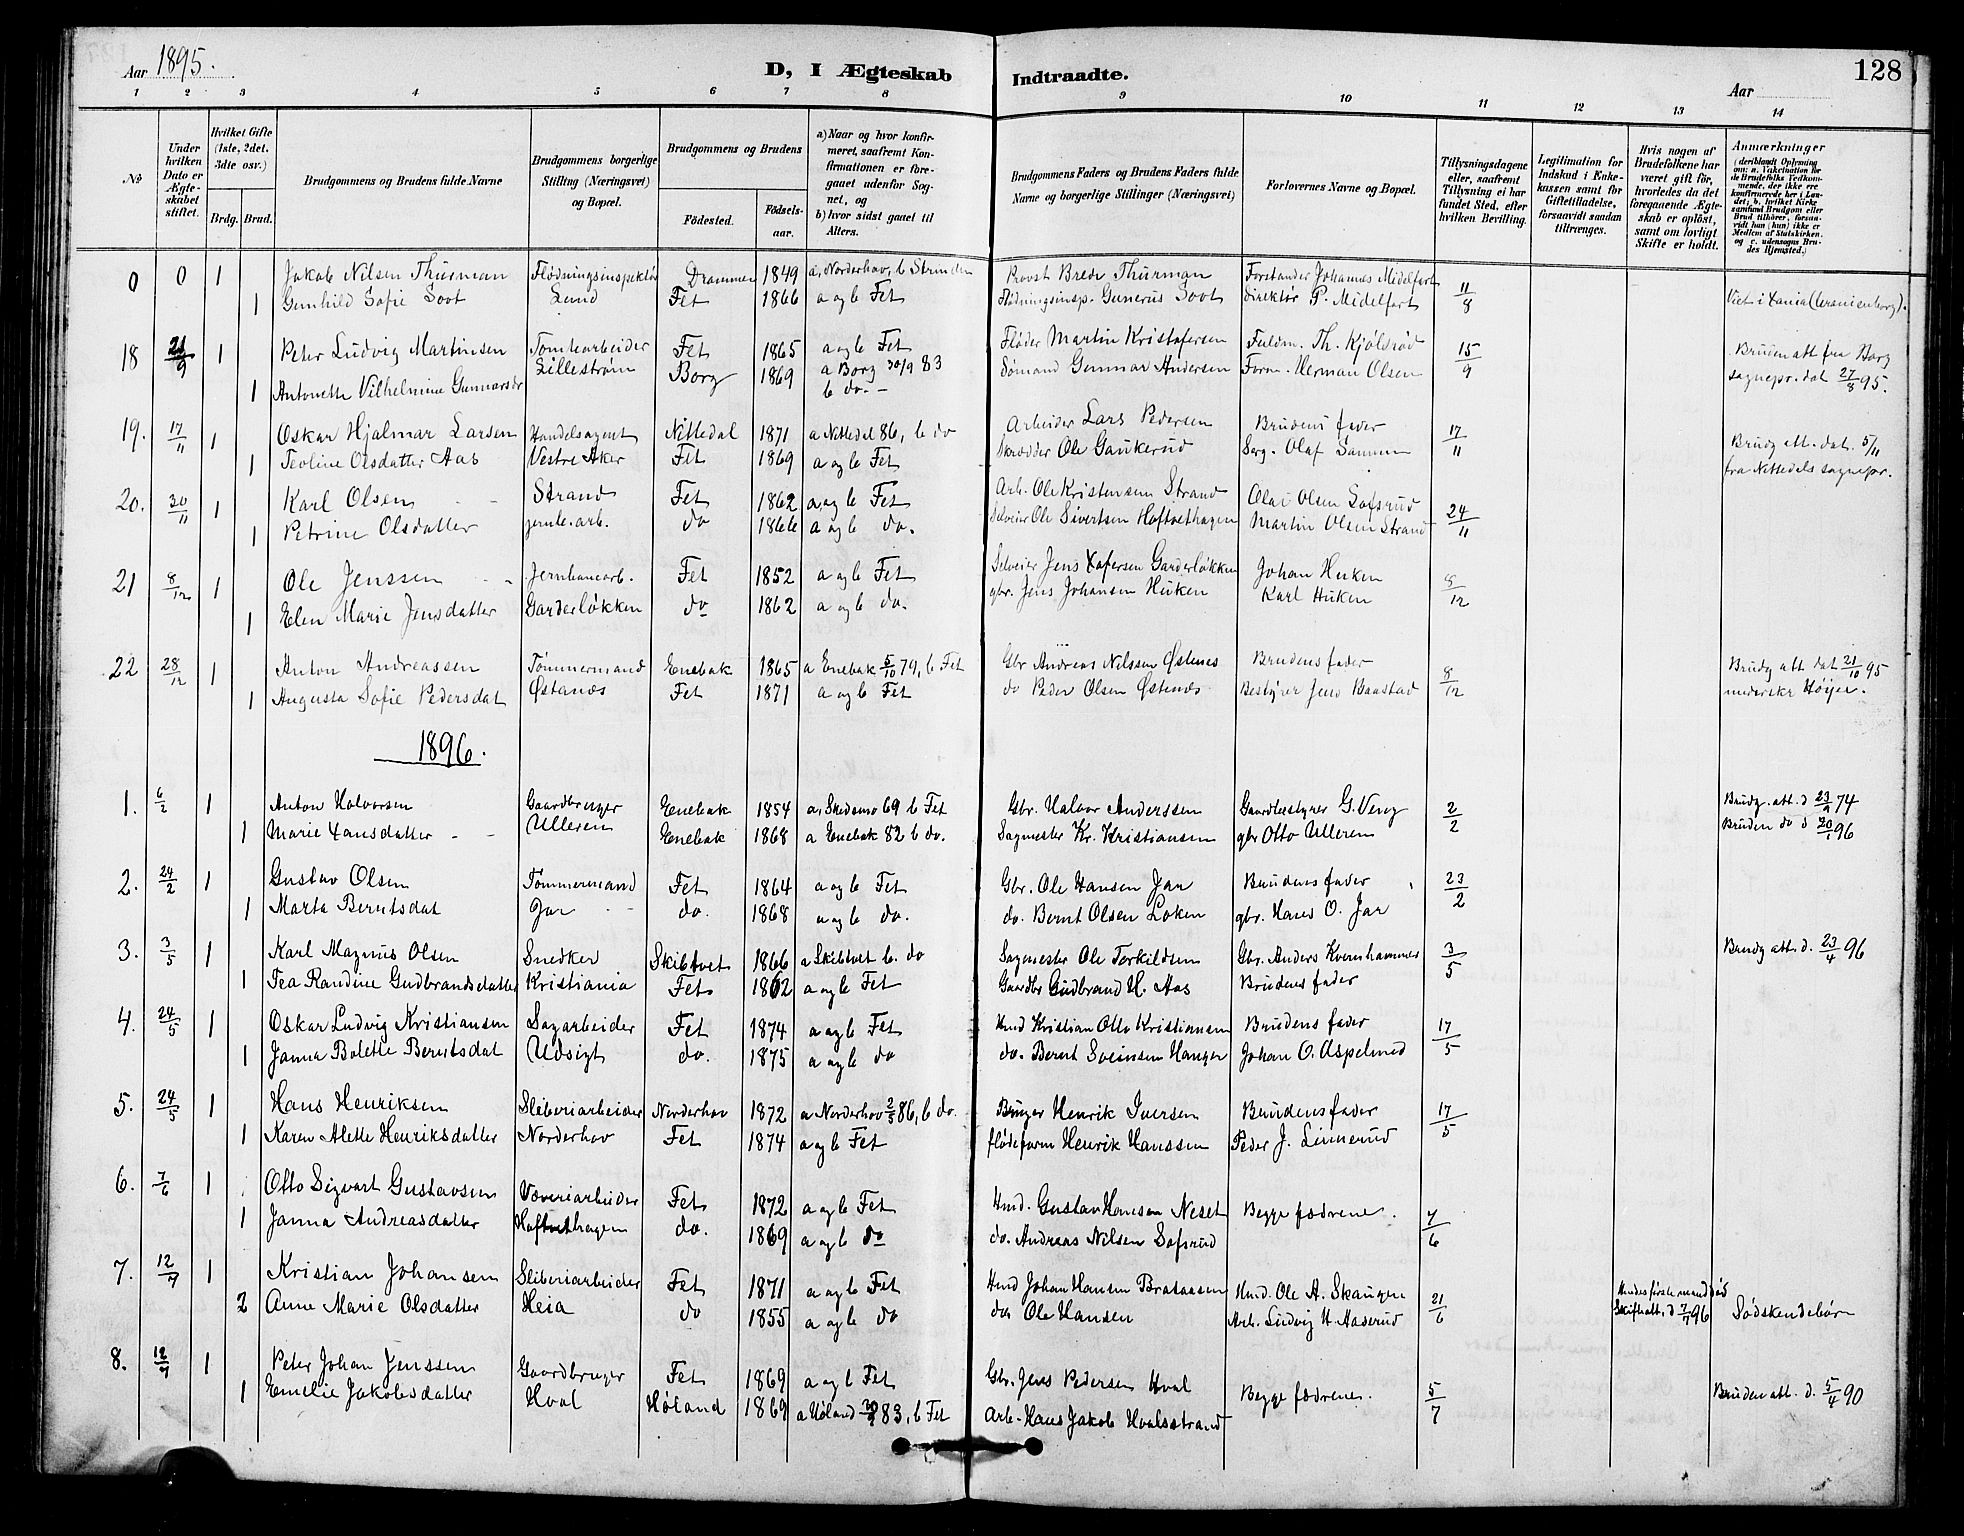 Aar 1895.
D, I Ægteskab Indtraadte.
128
Aar
1 2 3 4 5 6 7 8 9 10 11 12 13 14
No
Under hvilken Dato er Ægteskabet stiftet.
Hvilket Gifte (1ste, 2det, 3dte osv.)
Brdg. Brud.
Brudgommens og Brudens fulde Navne
Brudgommens borgerlige Stilling (Næringsvei) og Bopæl.
Brudgommens og Brudens
Fødested.
Fødselsaar.
a) Naar og hvor konfirmeret, saafremt Konfirmationen er foregaaet udenfor Sognet, og
b) hvor sidst gaaet til Alters.
Brudgommens Faders og Brudens Faders fulde Navne og borgerlige Stillinger (Næringsvei)
Forlovernes Navne og Bopæl.
Tillysningsdagene eller, saafremt Tillysning ei har fundet Sted, efter hvilken Bevilling.
Legitimation for Indskud i Enkekassen samt for Giftetilladelse, forsaavidt saadan tiltrænges.
Hvis nogen af Brudefolkene har været gift før, hvorledes da det foregaaende Ægteskab er opløst, samt om lovligt Skifte er holdt.
Anmærkninger
(deriblandt Oplysning om: a. Vakcination for de Brudefolks Vedkommende, der ikke ere konfirmerede her i Landet; b. hvilket Kirkesamfund Brudgom eller Brud tilhører, forsaavidt han (hun) ikke er Medlem af Statskirken, og c. udensogns Brudes Hjemsted.)
0 0 1 Jakob Nilsen Thurman Flødningsinspektør Drammen 1849 a, Norderhov, b Strinden Provst Brede Thurman Forstander Johannes Midelfart 11/8
1 Gunhild Sofie Soot Lund Fet 1866 a og b Fet Flødningsinsp. Gunerus Soot Direktør P. Midelfart Viet i Xania (Uranienborg).
18 21/9 1 Peter Ludvig Martinsen Tomtearbeider Fet 1865 a og b Fet Fløder Martin Kristofersen Fuldm. Th. Kjølsrød 15/9 Bruden att fra Borg
1 Antonette Vilhelmine Gunnarsdr Lillestrøm Borg 1869 a Borg 30/9 83 b do. Sømand Gunnar Andersen Form. Herman Olsen sognepr. dat 27/8 95.
19. 17/11 1 Oskar Hjalmar Larsen Handelsagent Nittedal 1871 a Nittedal 86, b do Arbeider Lars Pedersen Brudens fader 17/11 Brudg att. dat. 5/11
1 Teoline Olsdatter Aas Vestre Aker Fet 1869 a og b Fet Skrædder Ole Gaukerud Serg. Olaf Sannum fra Nittedals sognepr.
20. 30/11 1 Karl Olsen Strand Fet 1862 a og b Fet Arb. Ole Kristensen Strand Olai Olsen Sofsrud 24/11
1 Petrine Olsdatter jernb.arb. do 1866 a og b do. Selveier Ole Sivertsen Hoftvethagen Martin Olsen Strand
21 8/12 1 Ole Jenssen Jernbanearb. Fet 1852 a og b Fet Selveier Jens Xofersen Garderløkken Johan Huken 8/12
1 Elen Marie Jensdatter Garderløkken do 1862 a og b do. gbr. Jens Johansen Huken Karl Huken
22 28/12 1 Anton Andreassen Tømmermand Enebak 1865 a Enebak 5/10 79, b Fet Gbr Andreas Nilssen Østenes Brudens fader 8/12 Brudg att dat 21/10 95
1 Augusta Sofie Pedersdat Østanes Fet 1871 a og b Fet do Peder Olsen Østenes Bestyrer Jens Baastad underskr Høyer.
1896.
1. 6/2 1 Anton Halvorsen Gaardbruger Enebak 1854 a, Skedsmo 69 b Fet Gbr. Halvor Anderssen Gaardbestyrer G. Veng 2/2 Brudg. att. d 23/9 74
1 Marie Hansdatter Ulleren Enebak 1868 a Enebak 82 b do. Sagmester Kr. Kristiansen gbr Otto Ulleren Bruden do d 20/1 96
2. 24/2 1 Gustav Olsen Tømmermand Fet 1864 a og b Fet Gbr. Ole Hansen Jar Brudens fader 23/2
1 Marta Berntsdat Jar do. 1868 a og b do. do. Bernt Olsen Løken gbr. Hans O. Jar
3. 3/5 1 Karl Magnus Olsen Snedker Skibtvet 1866 a Skibtvet b. do Sagmester Ole Torkildsen Gbr. Anders Kvernhammer 3/5 Brudg att. d. 23/4 96
1 Tea Randine Gudbrandsdatter Kristiania Fet 1862 a og b Fet Gaardbr Gudbrand H. Aas Brudens fader
4. 24/5 1 Oskar Ludvig Kristiansen Sagarbeider Fet 1874 a og b Fet Hmd Kristian Otto Kristiansen Brudens fader 17/5
1 Janna Bolette Berntsdat Udsigt do. 1875 a og b do do. Bernt Svensen Hanger Johan O. Aspelund
5. 24/5 1 Hans Henriksen Sliberiarbeider Norderhov 1872 a Norderhov 2/5 86, b do. Bruger Henrik Iversen Brudens fader 17/5
1 Karen Alette Henriksdatter Norderhov Fet 1874 a og b Fet flødeform Henrik Hanssen Peder J. Linnerud
6. 7/6 1 Otto Sigvart Gustavsen Væveriarbeider Fet 1872 a og b Fet Hmd. Gustav Hansen Neset Begge fædrene. 7/6
1 Janna Andreasdatter Hoftvethagen do. 1869 a og b do do. Andreas Nilsen Sofsrud
7. 12/7 1 Kristian Johansen Sliberiarbeider Fet 1871 a og b Fet Hmd Johan Hansen Brataasen Hmd. Ole A. Skaugen 21/6 Hendes første mand død
2 Anne Marie Olsdatter Heia do 1855 a og b do do. Ole Hansen Arb. Ludvig H. Aaserud Skifteatt. d 7/7 96 Sødskendebørn
8. 12/7 1 Peter Johan Jenssen Gaardbruger Fet 1869 a og b Fet Gbr. Jens Pedersen Hval Begge fædrene. 5/7 Bruden att. d. 5/4 90
1 Emelie Jakobsdatter Hval Høland 1869 a Høland 30/9 83, b Fet Arb. Hans Jakob Hvalsstrand